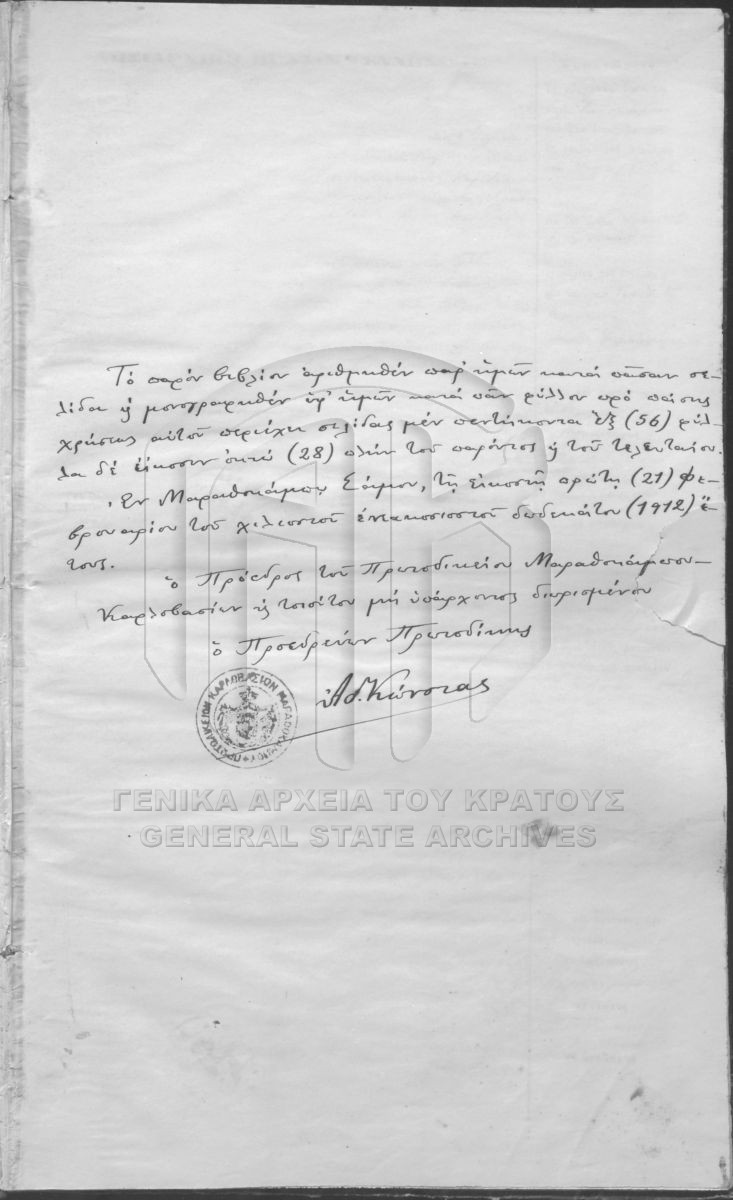 Τό παρόν βιβλίον ἀριθμηθέν παρ' ἡμῶν κατά πᾶσαν σε-
λίδα ἤ μονογραφηθέν ὑφ' ἡμῶν κατά πᾶν φύλλον πρό πάσης
χρήσεως αὐτοῦ περιέχει σελίδας μέν πεντήκοντα ἕξ (56) φύλ-
λα δέ εἴκοσιν ὀκτώ (28) πλήν τοῦ παρόντος ἤ τοῦ τελευταίου.
Ἐν Μαραθοκάμπῳ Σάμου, τῇ εἰκοστῇ πρώτῃ (21) Φε-
βρουαρίου τοῦ χιλιοστοῦ ἐννακοσιοστοῦ δωδεκάτου (1912) ἔ-
τους.
ὁ Πρόεδρος τοῦ Πρωτοδικείου Μαραθοκάμπου-
Καρλοβασίων ἤ τοιούτου μή ὑπάρχοντος διωρισμένου
ὁ Προεδρεύων Πρωτοδίκης
Κώνστας
ΠΡΩΤΟΔΙΚΕΙΟΝ ΚΑΡΛΟΒΑΣΙΩΝ ΜΑΡΑΘΟΚΑΜΠΟΥ
ΓΕΝΙΚΑ ΑΡΧΕΙΑ ΤΟΥ ΚΡΑΤΟΥΣ
GENERAL STATE ARCHIVES